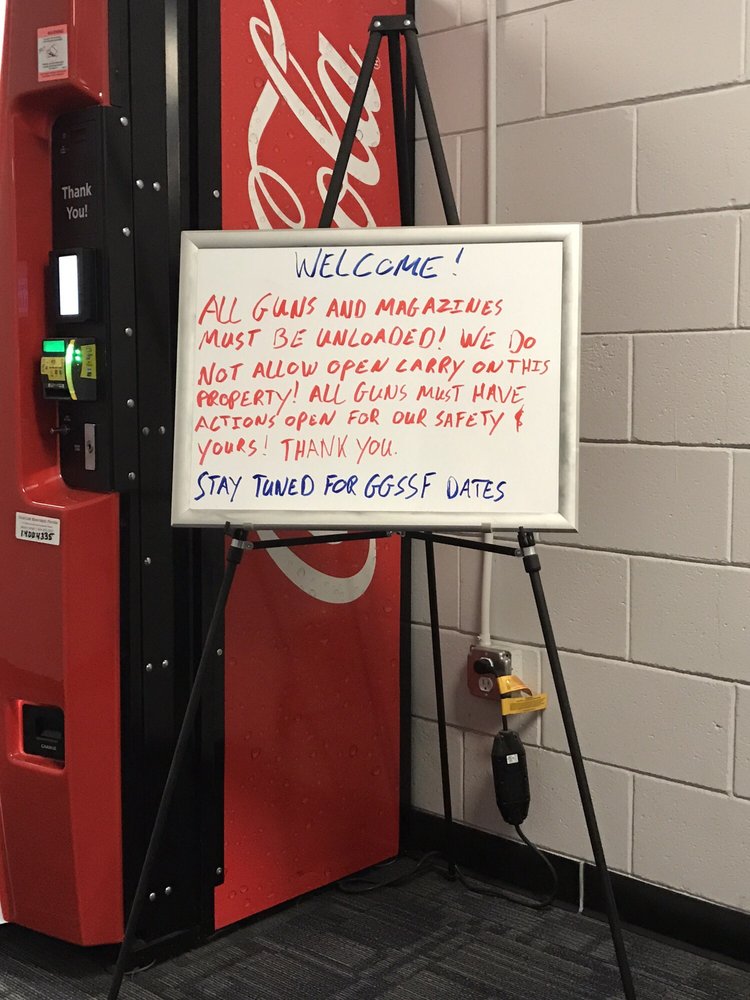 Thank
You!
Cola
WELCOME!
ALL GUNS AND MAGAZINES
MUST BE UNLOADED! WE DO
NOT ALLOW OPEN CARRY ON THIS
PROPERTY! ALL GUNS MUST HAVE
ACTIONS OPEN FOR OUR SAFETY &
YOURS! THANK YOU.
STAY TUNED FOR GGSSF DATES